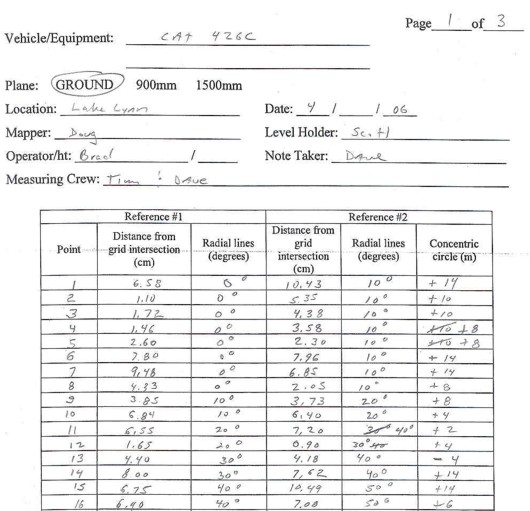 Page 1 of 3
Vehicle/Equipment: CAT 426C
Plane: GROUND 900mm 1500mm
Location: Lake Lynn Date: 4 / / 06
Mapper: Doug Level Holder: Scott
Operator/ht: Brad / Note Taker: Dave
Measuring Crew: Tim : Dave
Reference #1 Reference #2
Point Distance from grid intersection (cm) Radial lines (degrees) Distance from grid intersection (cm) Radial lines (degrees) Concentric circle (m)
1 6.58 0° 10.43 10° + 14
2 1.10 0° 5.35 10° + 10
3 1.72 0° 4.38 10° + 10
4 1.46 0° 3.58 10° +10 +8
5 2.60 0° 2.30 10° +10 +8
6 7.80 0° 7.96 10° + 14
7 9.48 0° 6.85 10° + 14
8 4.33 0° 2.05 10° + 8
9 3.85 10° 3.73 20° + 8
10 6.84 10° 6.40 20° + 4
11 6.55 20° 7.20 30° 40° + 2
12 1.65 20° 0.90 30° 40 + 4
13 4.40 30° 4.18 40° - 4
14 8.00 30° 7.62 40° + 14
15 6.75 40° 10.49 50° + 14
16 6.40 40° 7.08 50° + 6